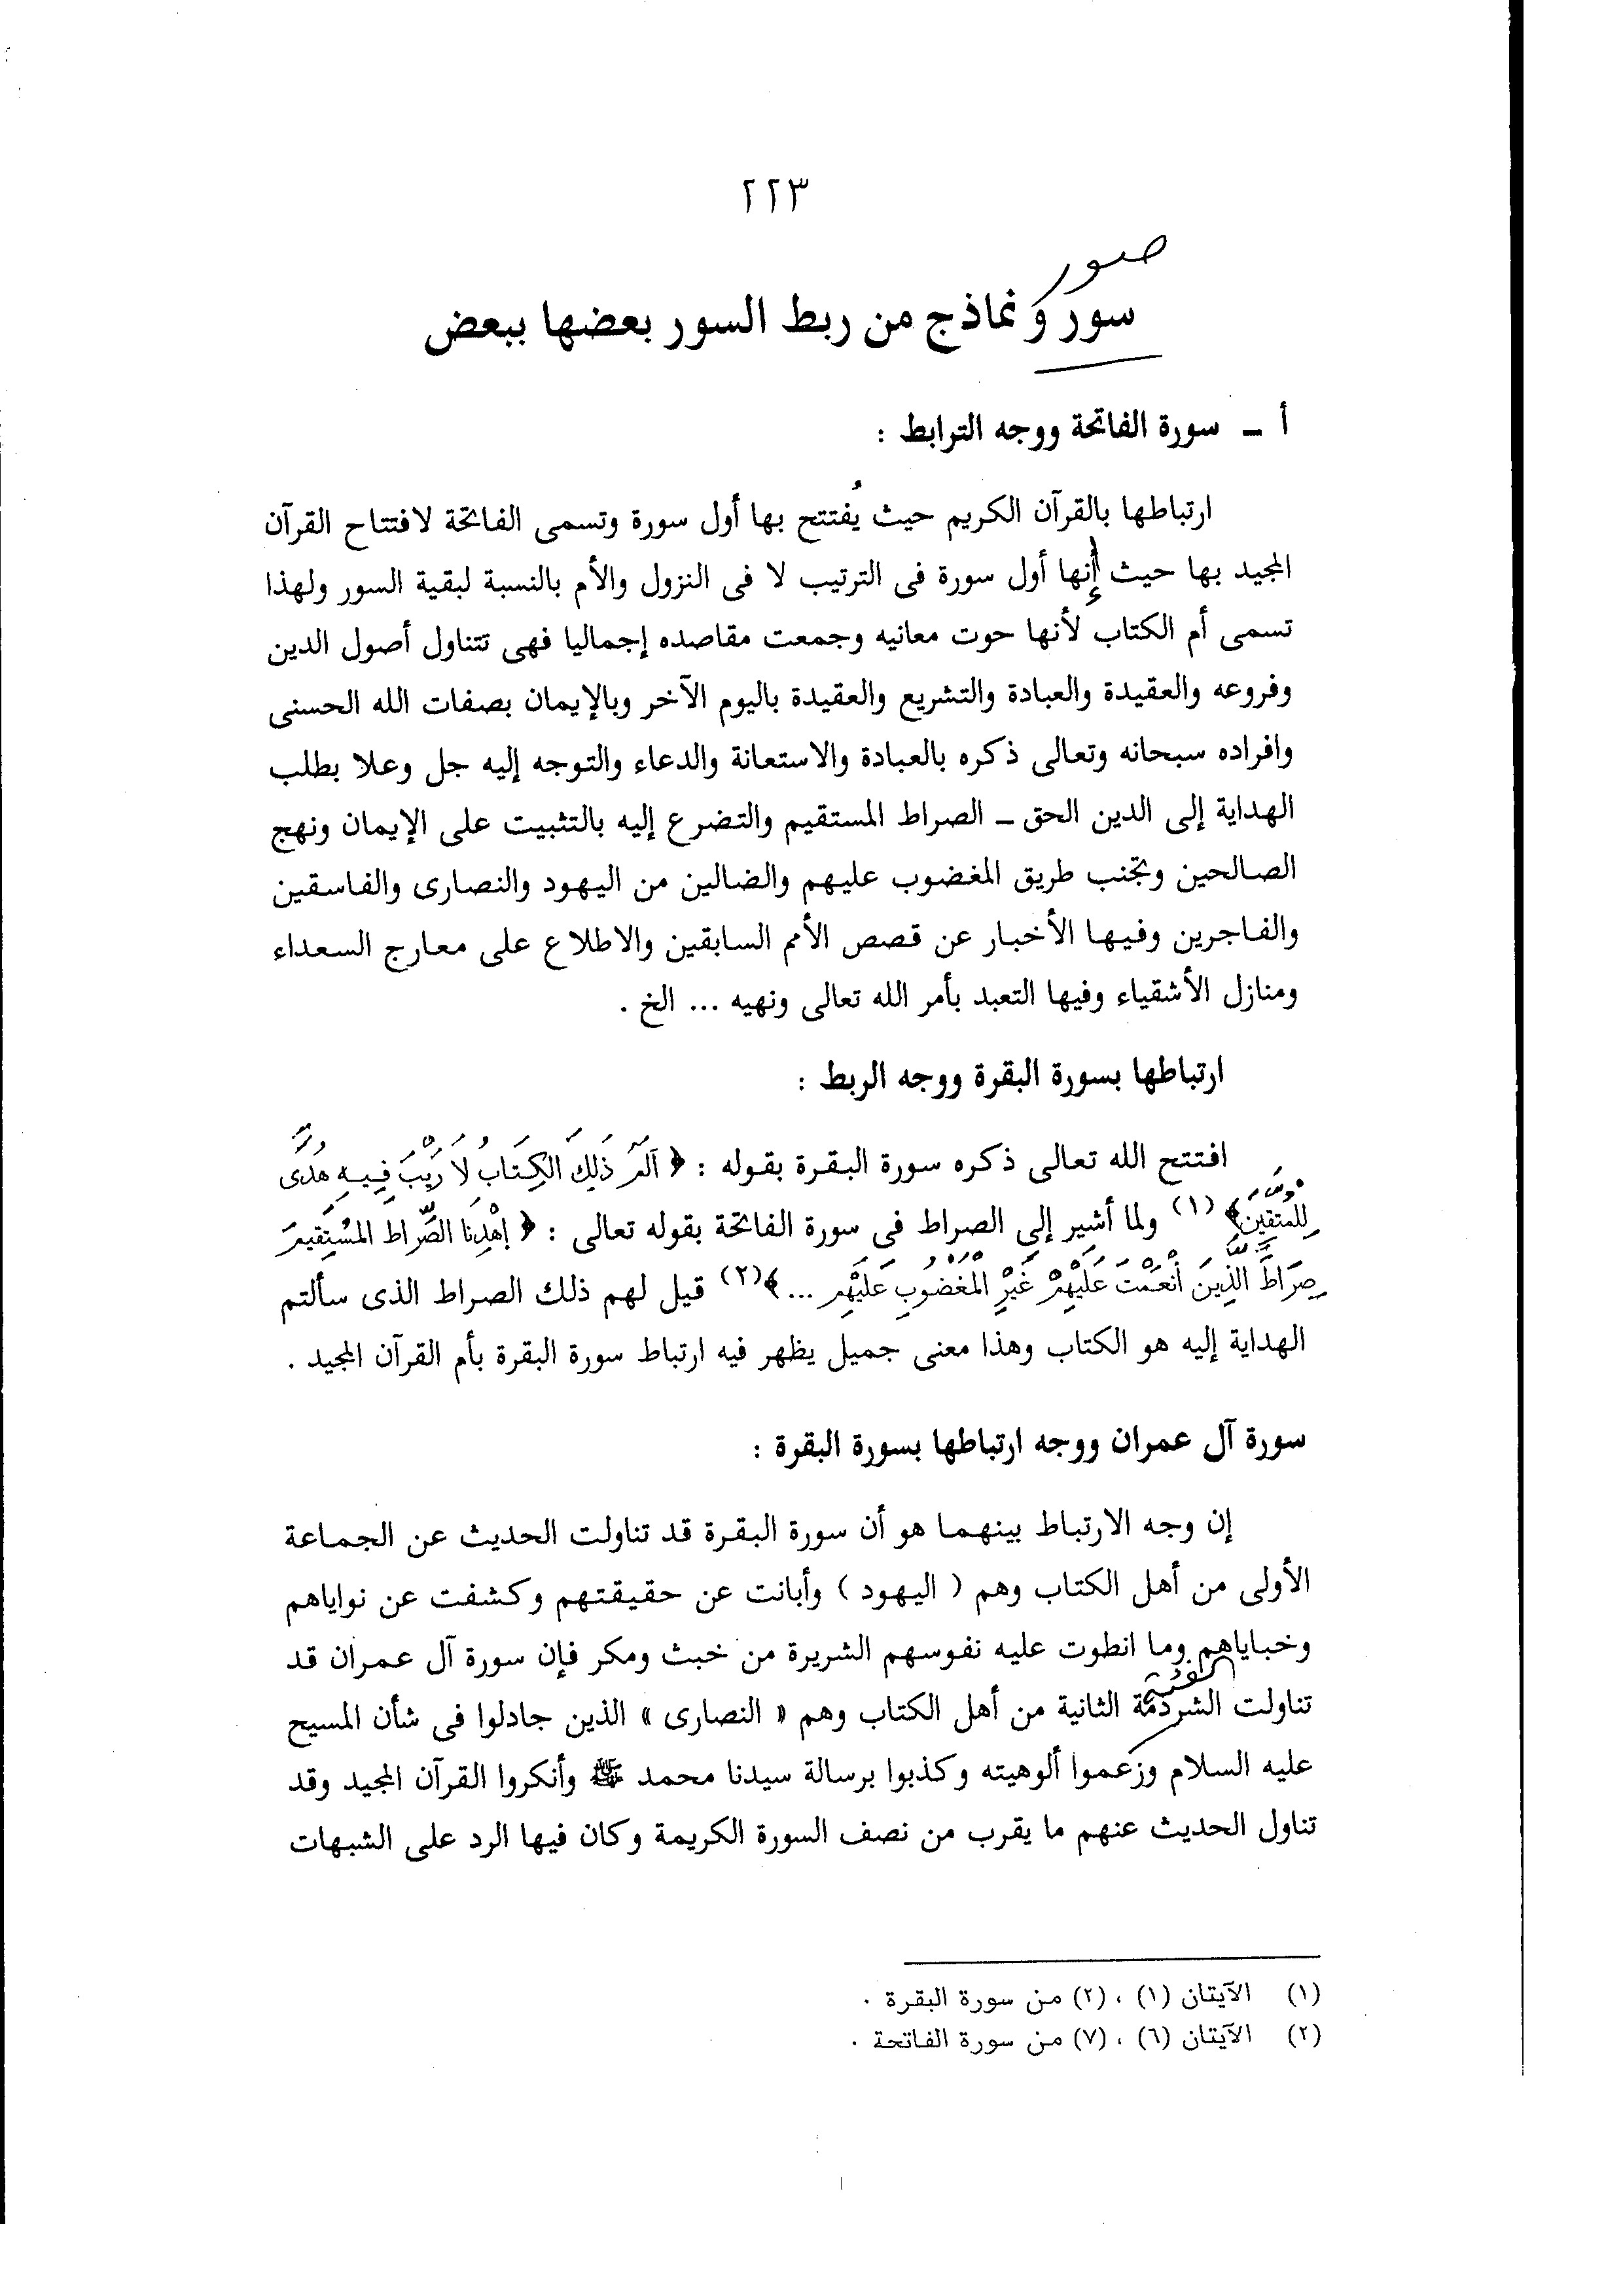 ٢٢٣
صور
سور و نماذج من ربط السور بعضها ببعض
أ ــ سورة الفاتحة ووجه الترابط :
ارتباطها بالقرآن الكريم حيث يُفتتح بها أول سورة وتسمى الفاتحة لافتتاح القرآن
المجيد بها حيث إنها أول سورة فى الترتيب لا فى النزول والأم بالنسبة لبقية السور ولهذا
تسمى أم الكتاب لأنها حوت معانيه وجمعت مقاصده إجماليا فهى تتناول أصول الدين
وفروعه والعقيدة والعبادة والتشريع والعقيدة باليوم الآخر وبالإيمان بصفات الله الحسنى
وافراده سبحانه وتعالى ذكره بالعبادة والاستعانة والدعاء والتوجه إليه جل وعلا بطلب
الهداية إلى الدين الحق ــ الصراط المستقيم والتضرع إليه بالتثبيت على الإيمان ونهج
الصالحين وتجنب طريق المغضوب عليهم والضالين من اليهود والنصارى والفاسقين
والفاجرين وفيها الأخبار عن قصص الأمم السابقين والاطلاع على معارج السعداء
ومنازل الأشقياء وفيها التعبد بأمر الله تعالى ونهيه ... الخ .
ارتباطها بسورة البقرة ووجه الربط :
افتتح الله تعالى ذكره سورة البقرة بقوله : ﴿ الٓمٓ ذَلِكَ الكِتَابُ لَا رَيْبَ فِيهِ هُدًى
لِلْمُتَّقِينَ﴾ (١) ولما أشير إلى الصراط فى سورة الفاتحة بقوله تعالى : ﴿ اهْدِنَا الصِّرَاطَ المُسْتَقِيمَ
صِرَاطَ الَّذِينَ أَنْعَمْتَ عَلَيْهِمْ غَيْرِ الْمَغْضُوبِ عَلَيْهِمْ ...﴾(٢) قيل لهم ذلك الصراط الذى سألتم
الهداية إليه هو الكتاب وهذا معنى جميل يظهر فيه ارتباط سورة البقرة بأم القرآن المجيد .
سورة آل عمران ووجه ارتباطها بسورة البقرة :
إن وجه الارتباط بينهما هو أن سورة البقرة قد تناولت الحديث عن الجماعة
الأولى من أهل الكتاب وهم ( اليهود ) وأبانت عن حقيقتهم وكشفت عن نواياهم
وخباياهم وما انطوت عليه نفوسهم الشريرة من خبث ومكر فإن سورة آل عمران قد
تناولت الشرذمة الثانية من أهل الكتاب وهم « النصارى » الذين جادلوا فى شأن المسيح
عليه السلام وزعموا ألوهيته وكذبوا برسالة سيدنا محمد ﷺ وأنكروا القرآن المجيد وقد
تناول الحديث عنهم ما يقرب من نصف السورة الكريمة وكان فيها الرد على الشبهات
(١) الآيتان (١) ، (٢) من سورة البقرة .
(٢) الآيتان (٦) ، (٧) من سورة الفاتحة .